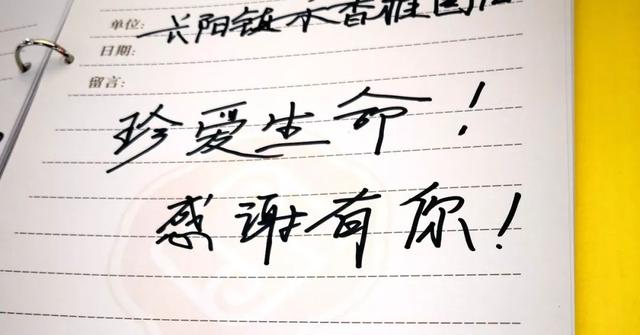 单位: 长阳镇木香雅园店
日期:
留言:
珍爱生命!
感谢有你!